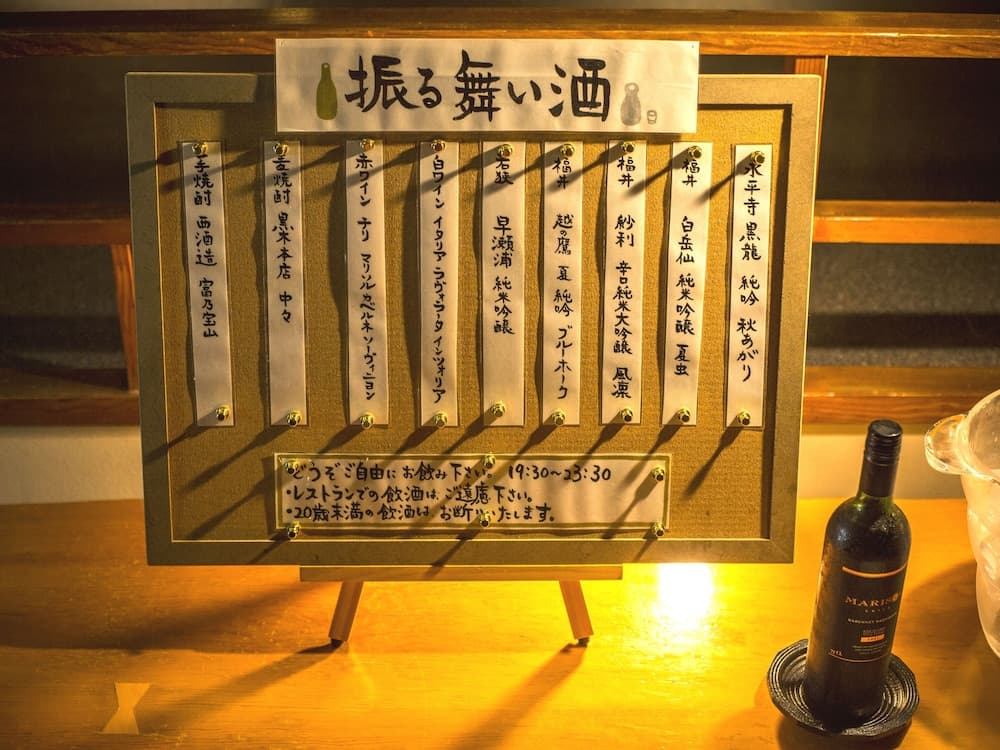 振る舞い酒
永平寺 黒龍 純吟 秋あがり
福井 白岳仙 純米吟醸 夏虫
福井 紗利 辛口純米大吟醸 風凛
福井 越の鷹 夏 純吟 ブルーホーク
若狭 早瀬浦 純米吟醸
白ワイン イタリア ラヴォラータ インツォリア
赤ワイン チリ マリソル カベルネ ソーヴィニョン
麦焼酎 黒木本店 中々
芋焼酎 西酒造 富乃宝山
・どうぞご自由にお飲み下さい。 19:30〜23:30
・レストランでの飲酒は、ご遠慮下さい。
・20歳未満の飲酒は お断りいたします。
MARISO
CHILE
CABERNET SAUVIGNON